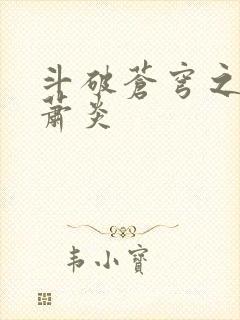 斗破蒼穹之
蕭炎
韦小寶